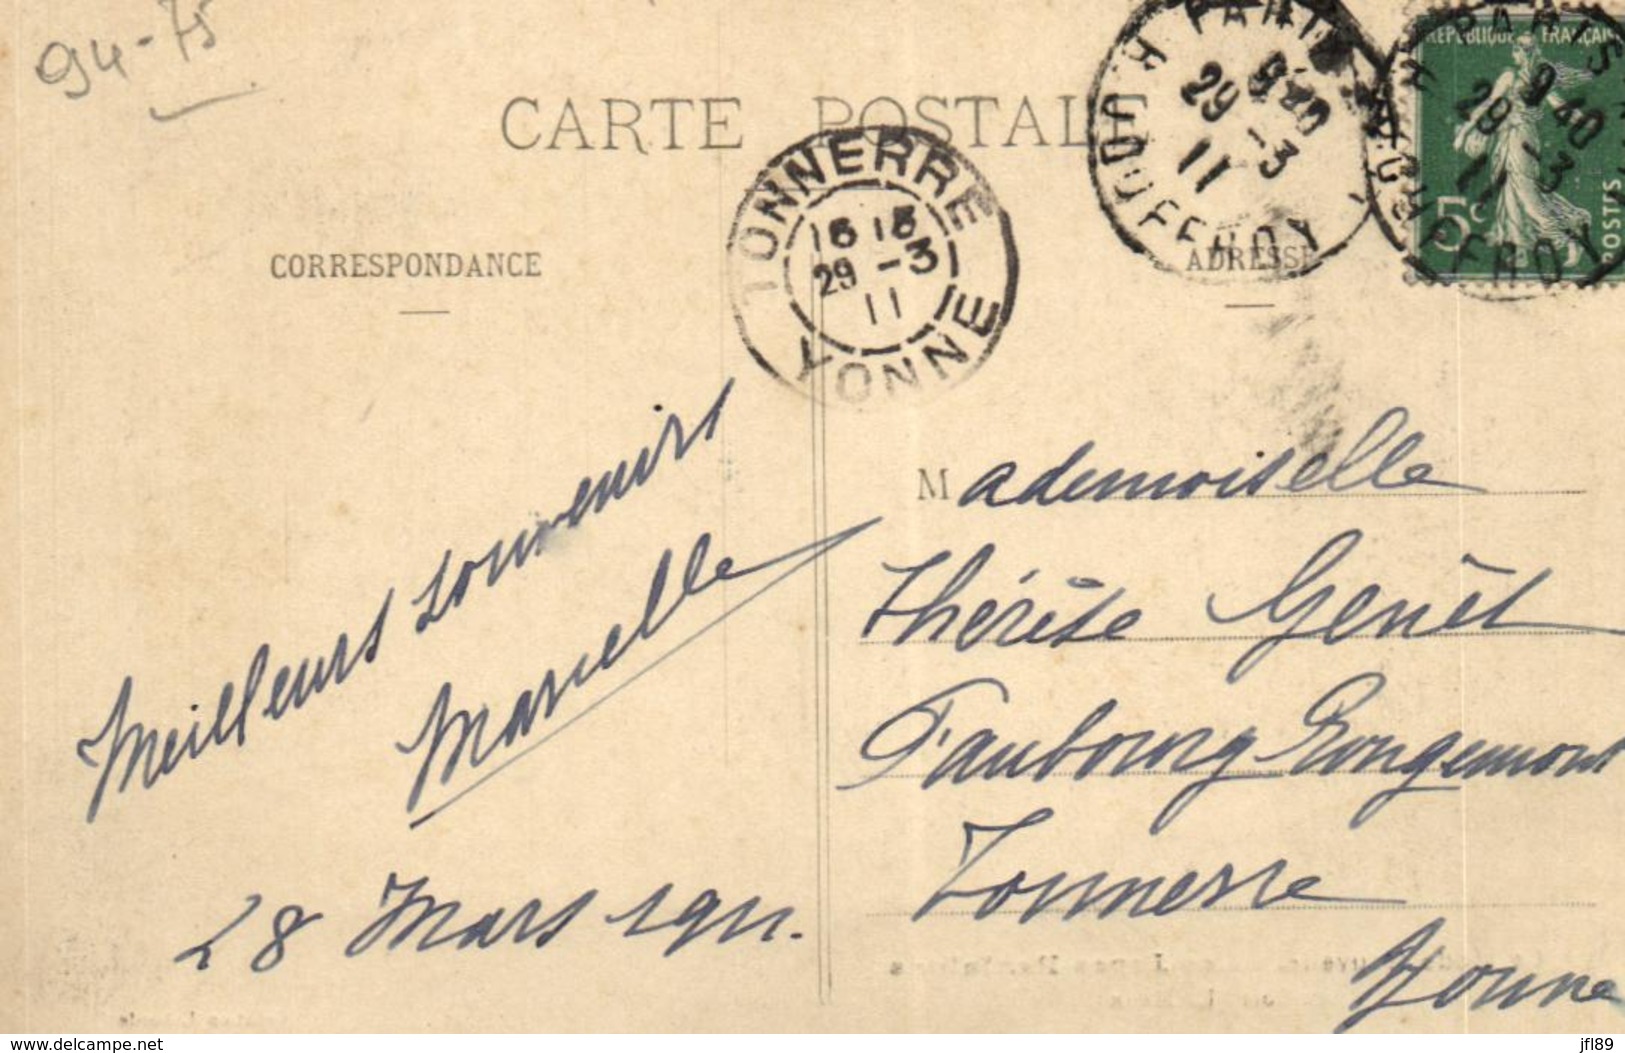 94-75
CARTE POSTALE
CORRESPONDANCE
ADRESSE
TONNERRE
15 15
29 -3
11
YONNE
PARIS
9 40
29 -3
11
R. JOUFFROY
PARIS
9 40
29 -3
11
R. JOUFFROY
REPUBLIQUE FRANÇAISE
5c
POSTES
Meilleurs souvenirs
Marcelle
28 Mars 1911.
Mademoiselle
Thérèse Genêt
Faubourg Rougemont
Tonnerre
Yonne
www.delcampe.net
jfl89